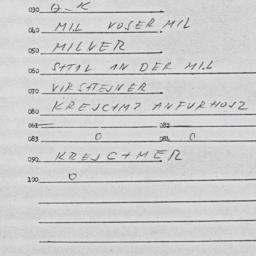 030 G-K
040 MIL VOSER MIL
050 MILNER
060 SATAL AN DER MIL
070 VIRSATEINER
080 KREJCAMJ ANFURHOLZ
081 082
083 0 084 0
090 KREJCAMER
100 0